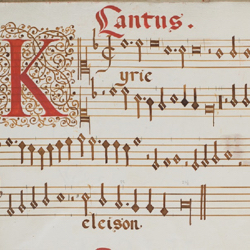 Cantus.
Kyrie
eleison.